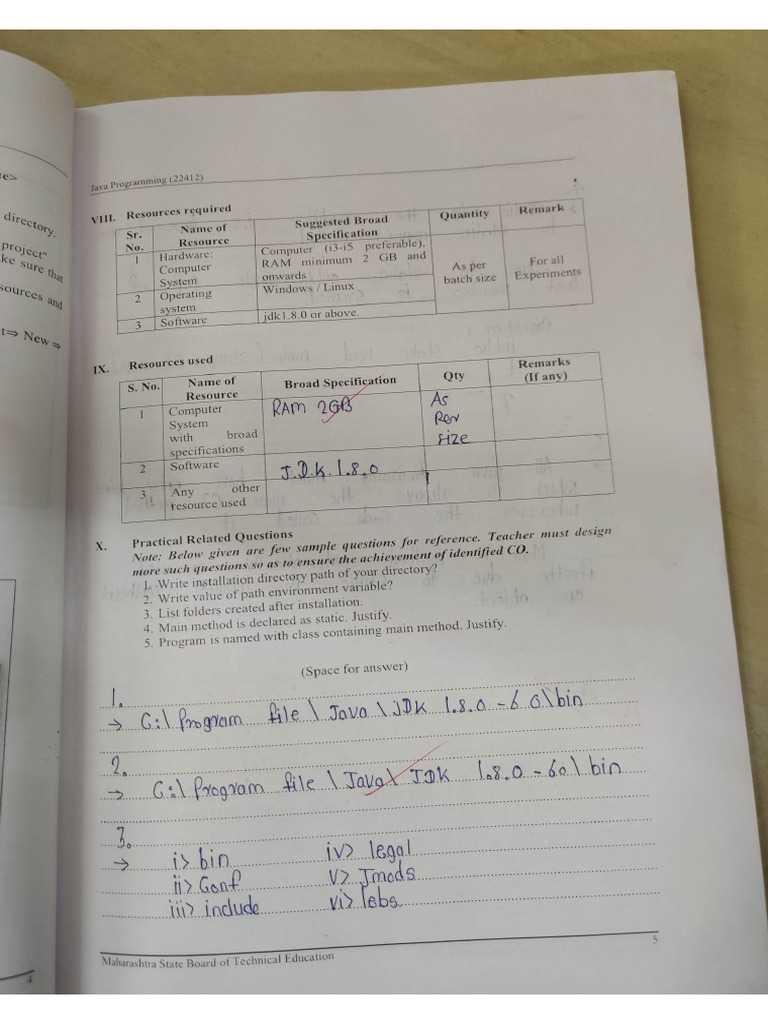 e>
directory.
project"
ke sure that
sources and
t⇒ New ⇒
4
Java Programming (22412)
VIII. Resources required
Sr. No. Name of Resource Suggested Broad Specification Quantity Remark
1 Hardware: Computer System Computer (i3-i5 preferable), RAM minimum 2 GB and onwards As per batch size For all Experiments
2 Operating system Windows / Linux
3 Software jdk1.8.0 or above.
IX. Resources used
S. No. Name of Resource Broad Specification Qty Remarks (If any)
1 Computer System with broad specifications RAM 2GB As Per size
2 Software J.D.K. 1.8.0
3 Any other resource used
X. Practical Related Questions
Note: Below given are few sample questions for reference. Teacher must design
more such questions so as to ensure the achievement of identified CO.
1. Write installation directory path of your directory?
2. Write value of path environment variable?
3. List folders created after installation.
4. Main method is declared as static. Justify.
5. Program is named with class containing main method. Justify.
(Space for answer)
1.
→ C:\ Program file \ Java \ JDK 1.8.0 - 60\bin
2.
→ C:\ Program file \ Java \ JDK 1.8.0 - 60\ bin
3.
→ i> bin iv> legal
ii> Conf v> Jmods
iii> include vi> lebs
Maharashtra State Board of Technical Education
5